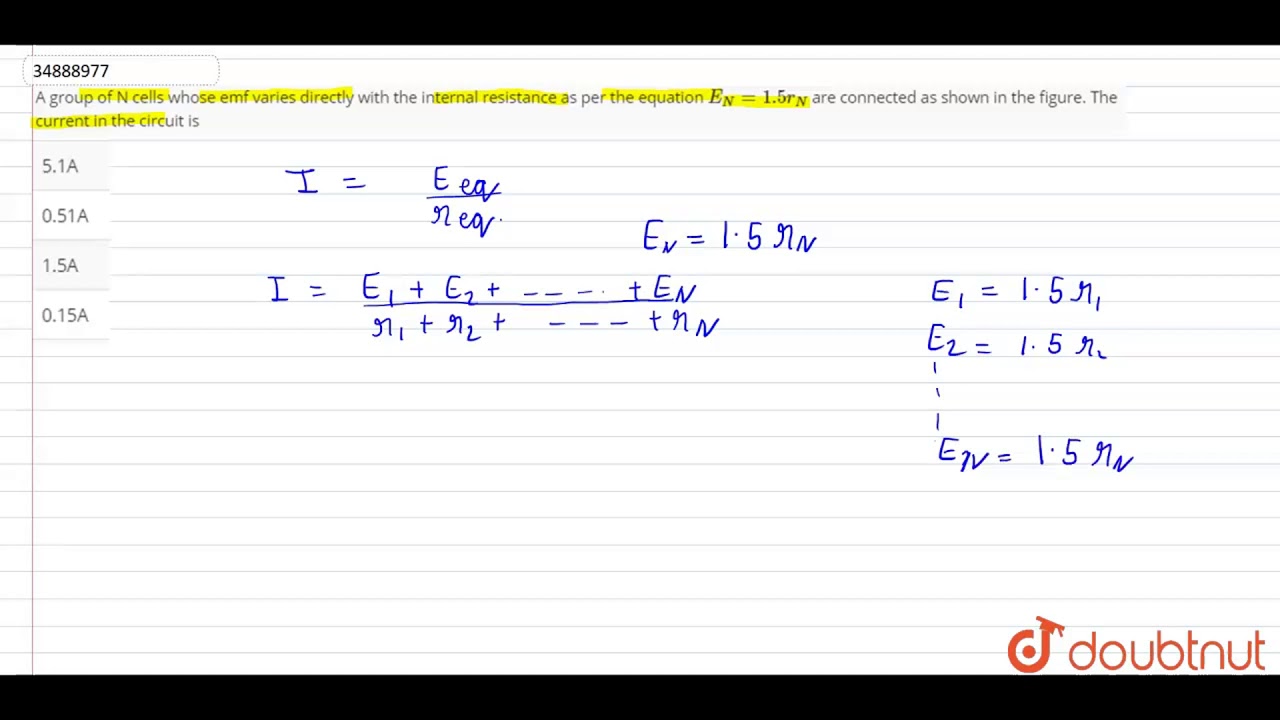 34888977
A group of N cells whose emf varies directly with the internal resistance as per the equation E_N = 1.5r_N are connected as shown in the figure. The
current in the circuit is
5.1A
0.51A
1.5A
0.15A
I = E eq / r eq.
E_N = 1.5 r_N
I = E_1 + E_2 + ---- + E_N / r_1 + r_2 + --- + r_N
E_1 = 1.5 r_1
E_2 = 1.5 r_2
E_N = 1.5 r_N
doubtnut